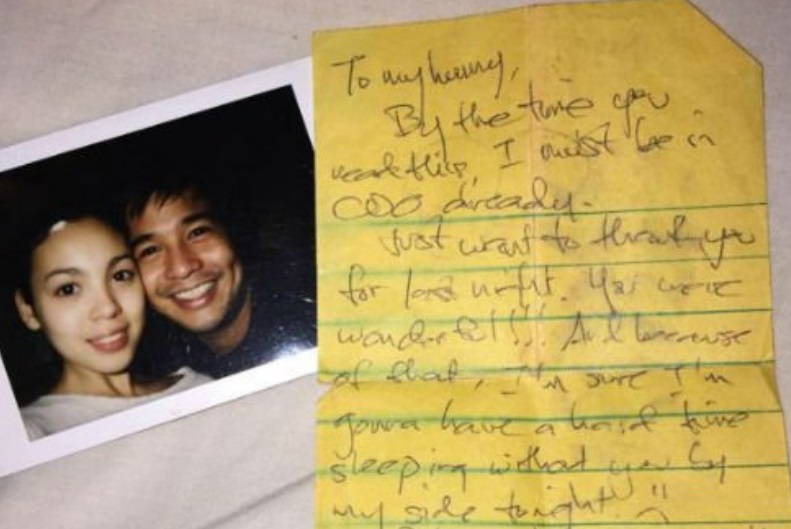 To my hunny,
By the time you
read this, I must be in
CDO already.
Just want to thank you
for last night. You were
wonderful!!! And because
of that, I'm sure I'm
gonna have a hard time
sleeping without you by
my side tonight!